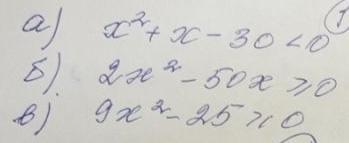 а) x² + x - 30 < 0
б) 2x² - 50x ≥ 0
в) 9x² - 25 ≥ 0